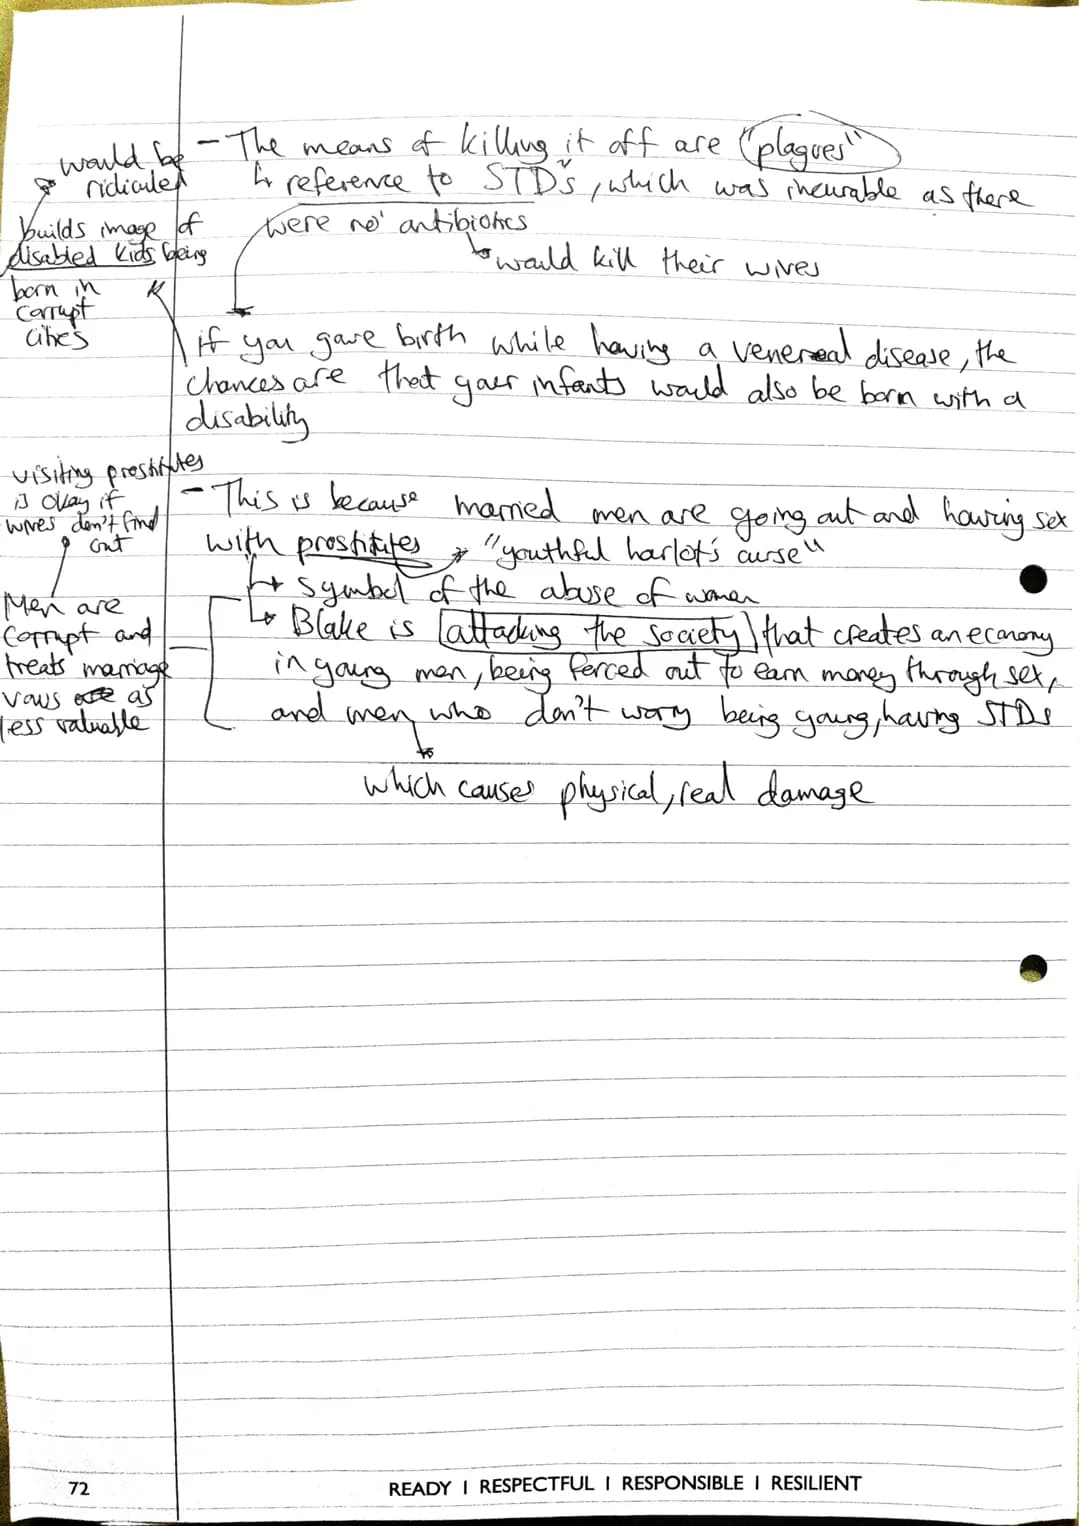 - The means of killing it off are "plagues"
↳ reference to STDs, which was incurable as there
were no antibiotics
↳ would kill their wives
would be
ridiculed
builds image of
disabled kids being
born in
corrupt
cities
if you gave birth while having a venereal disease, the
chances are that your infants would also be born with a
disability
visiting prostitutes
is okay if
wives don't find
out
Men are
corrupt and
treats marriage
vows as
less valuable
- This is because married men are going out and having sex
with prostitutes → "youthful harlot's curse"
↳ symbol of the abuse of women
↳ Blake is [attacking the society] that creates an economy
in young men, being forced out to earn money through sex,
and men who don't worry being young, having STDs
which causes physical, real damage
72
READY | RESPECTFUL | RESPONSIBLE | RESILIENT